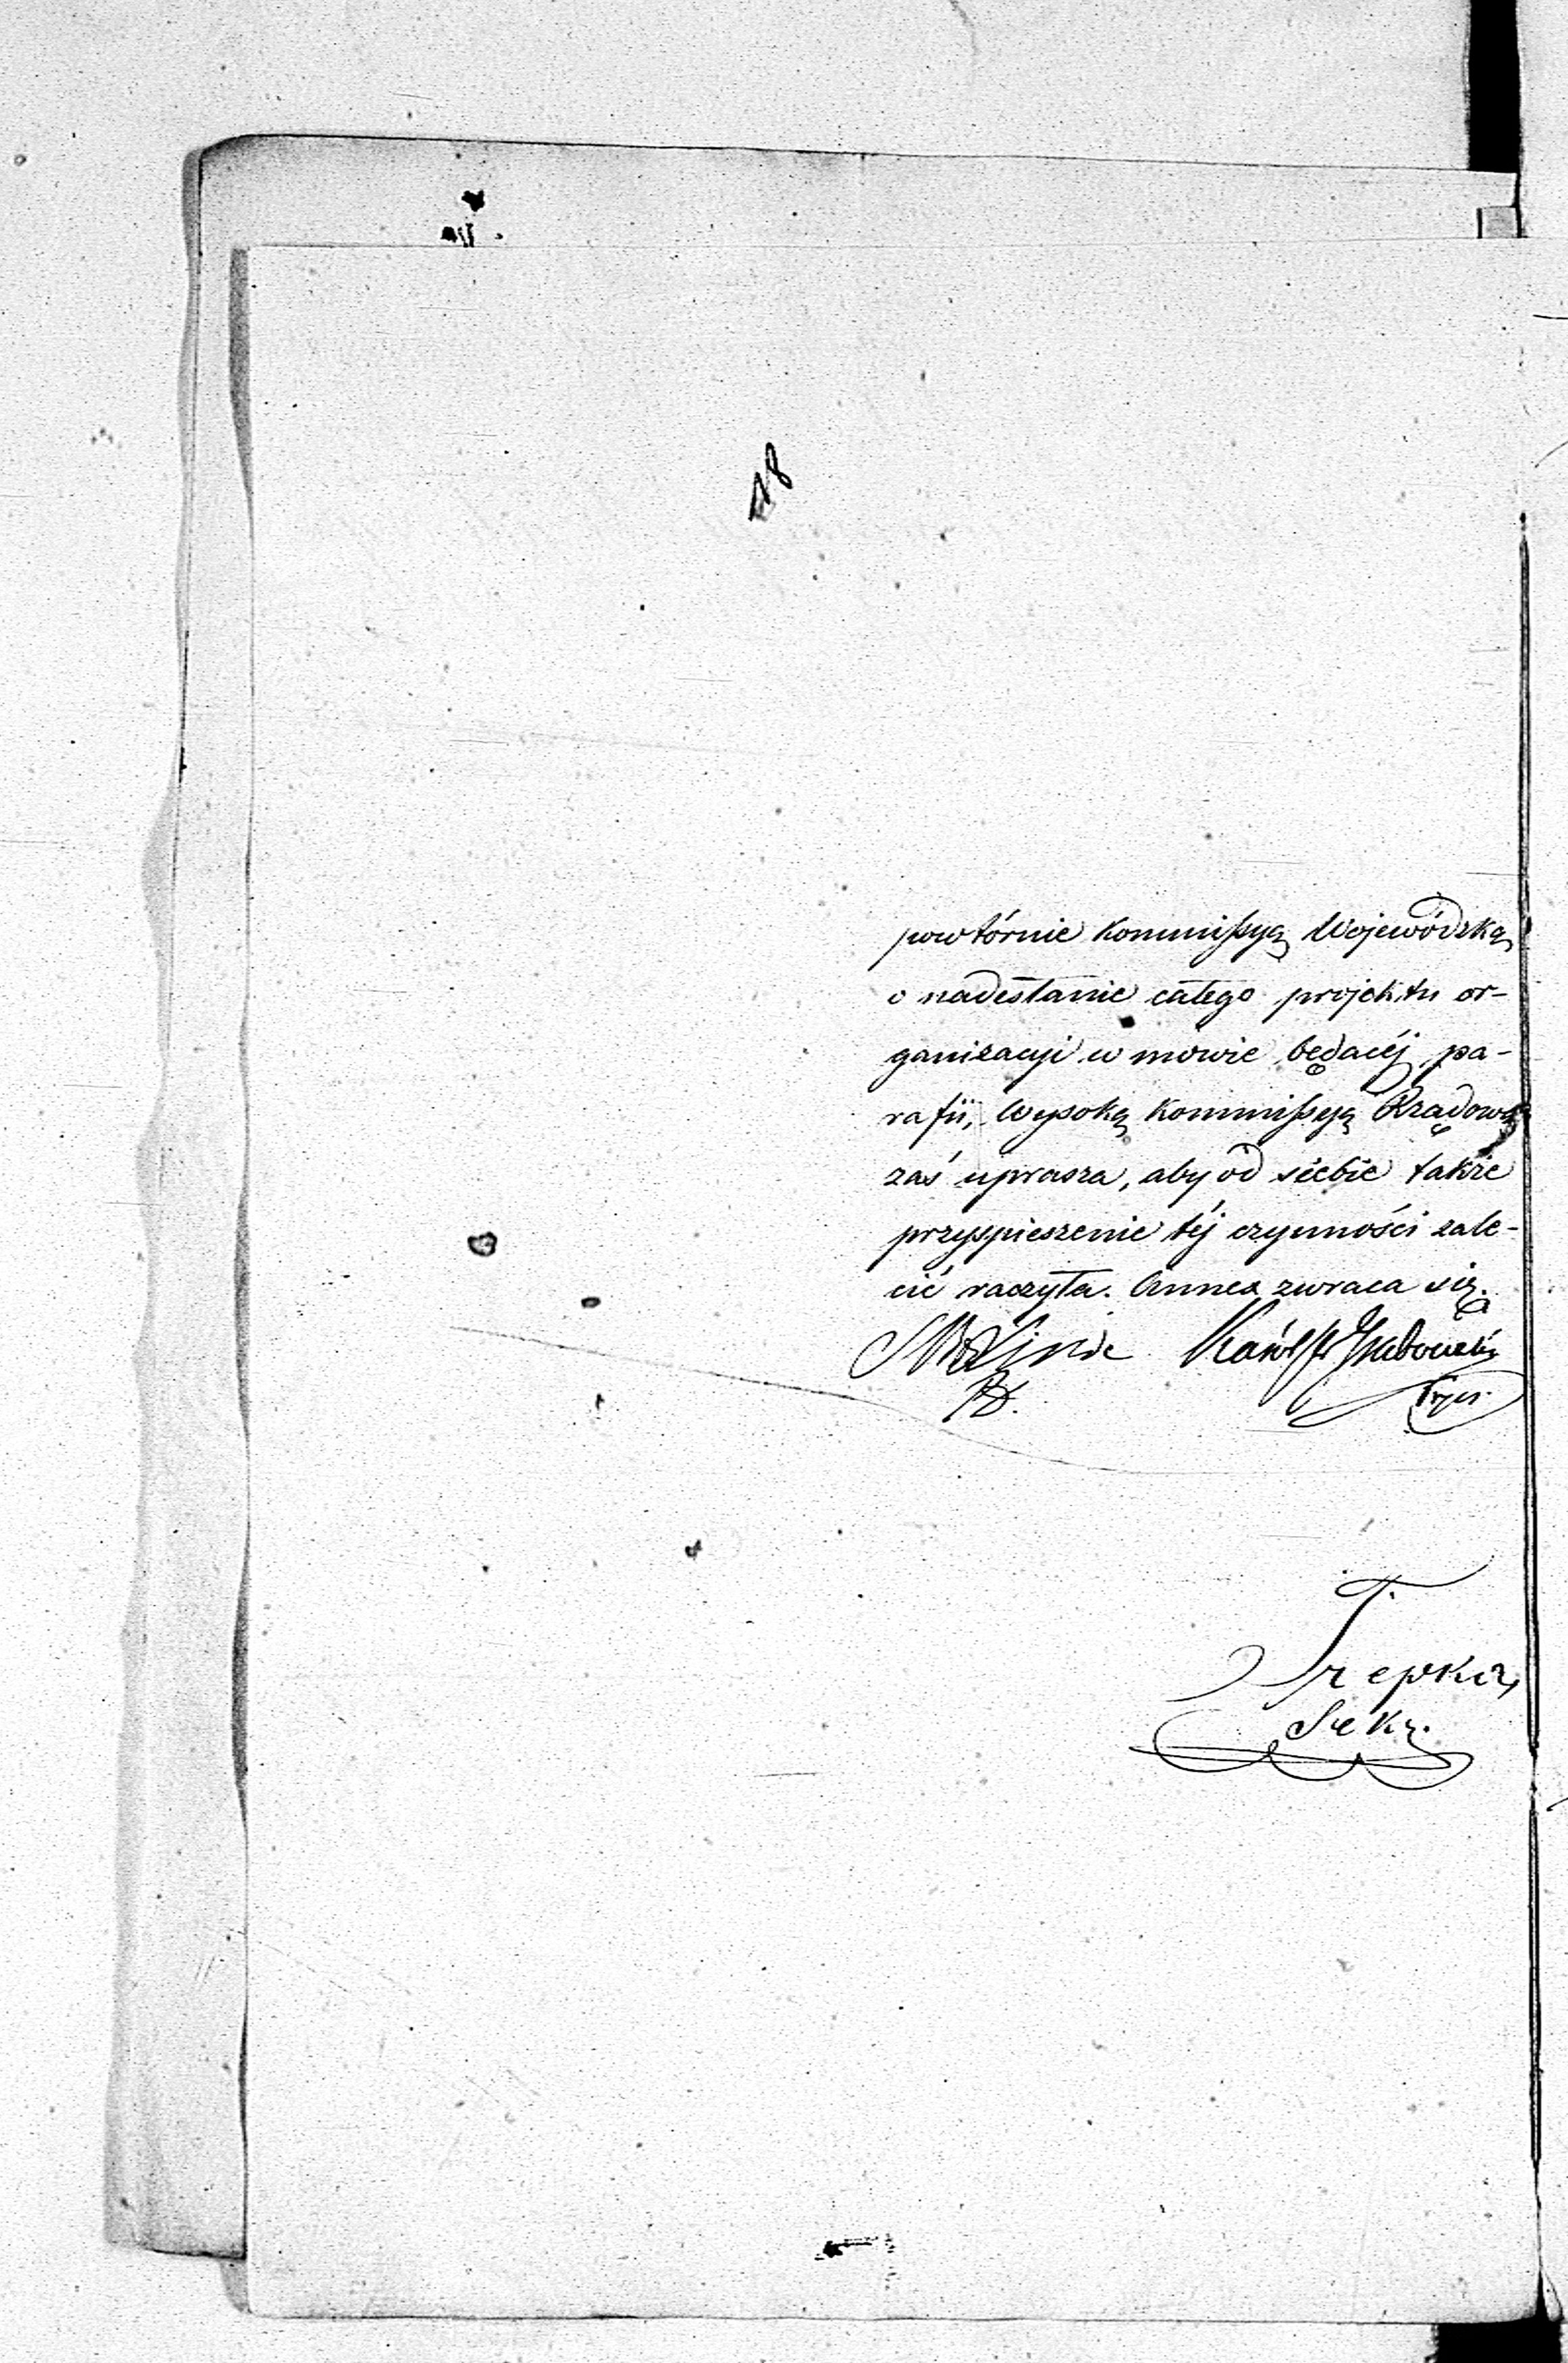 18
powtórnie Kommissyą Wojewódzką
o nadesłanie całego projektu or-
ganizacyi w mowie będącéj pa-
rafii, Wysoką Kommissyą Rządową
zaś uprasza, aby od siebie także
przyspieszenie téj czynności zale-
cić raczyła. Annex zwraca się.
Linde
Trepka,
Sekr.